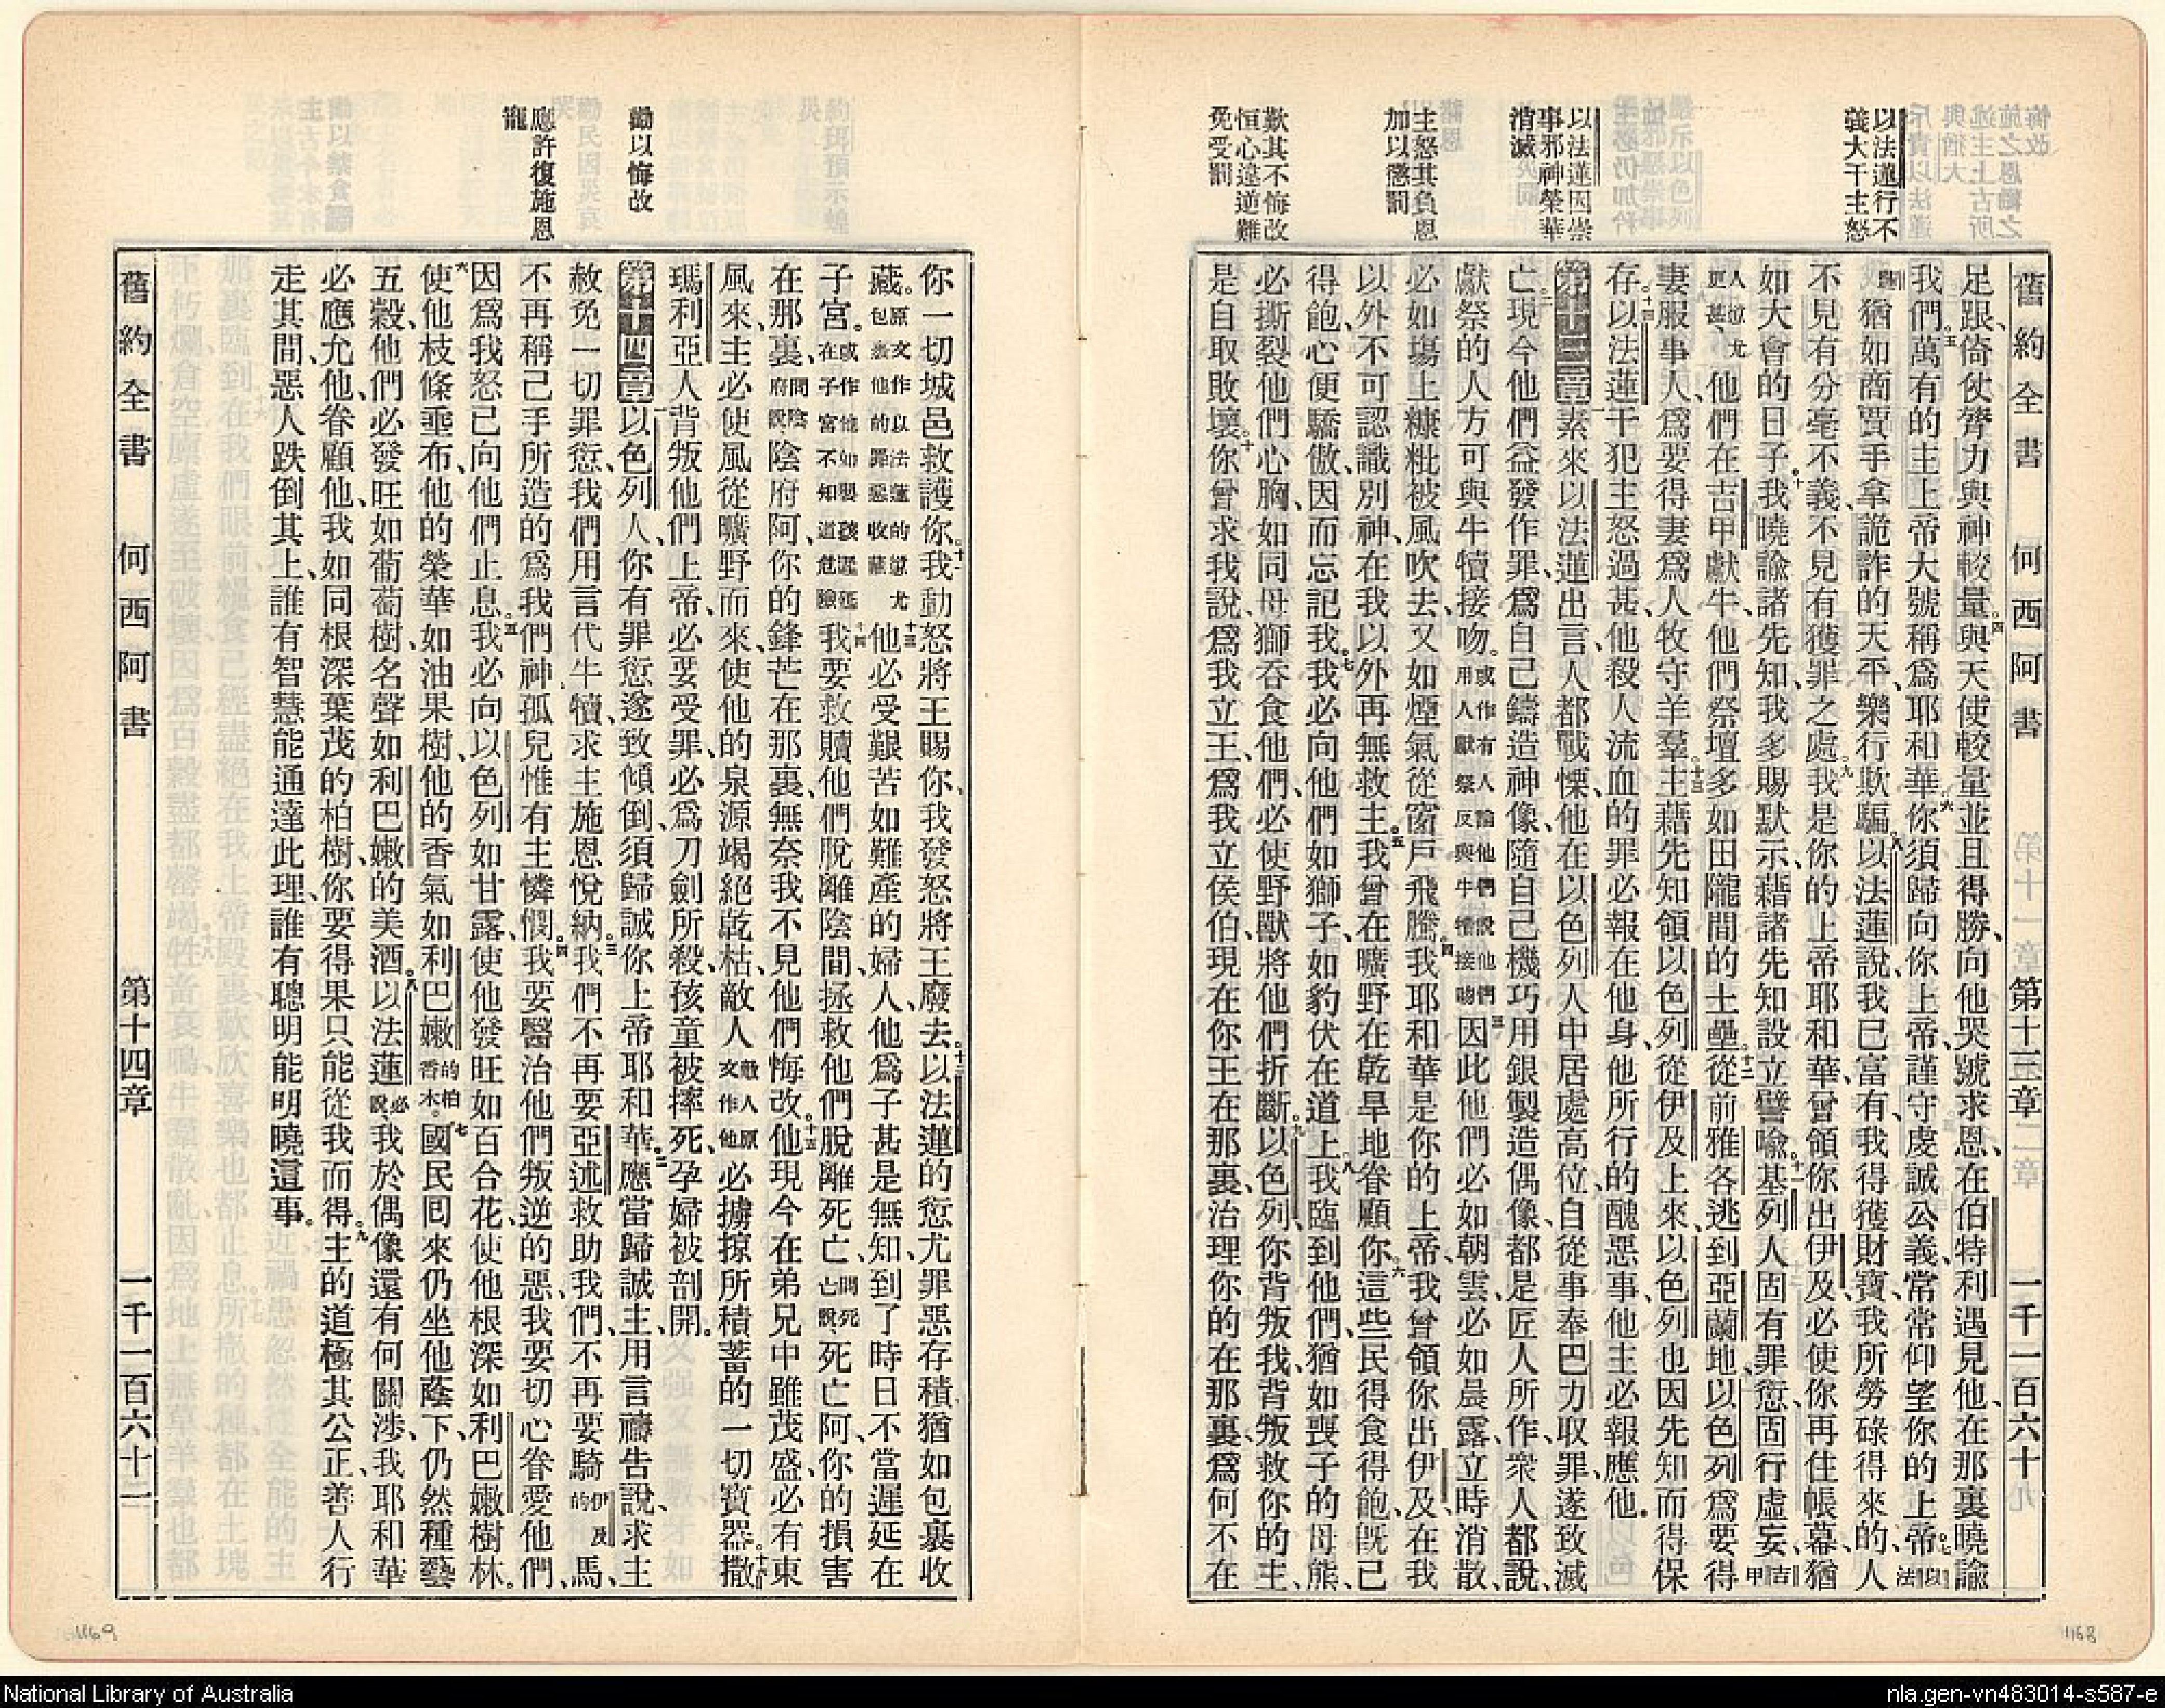 舊約全書 何西阿書 第十三章 一千一百六十
以法蓮行不義大干主怒
以法蓮因崇事邪神榮華消滅
主怒其負恩加以懲罰
歎其不悔改恒心違逆難免受罰
足跟、倚仗膂力與神較量。四與天使較量並且得勝、向他哭號求恩、在伯特利遇見他、在那裏曉諭
我們。五萬有的主上帝大號稱爲耶和華、六你須歸向你上帝、謹守虔誠公義、常常仰望你的上帝。七以法
蓮猶如商賈手拿詭詐的天平、樂行欺騙。八以法蓮說、我已富有、我得獲財寶、我所勞碌得來的、人
不見有分毫不義、不見有獲罪之處。九我是你的上帝耶和華、曾領你出伊及、必使你再住帳幕、猶
如大會的日子。十我曉諭諸先知、我多賜默示、藉諸先知設立譬喻。十一基列人固有罪愆、固行虛妄、吉甲
人愆尤更甚、他們在吉甲獻牛、他們祭壇多如田隴間的土壘。十二從前雅各逃到亞蘭地、以色列爲要得
妻服事人、爲要得妻爲人牧守羊羣。十三主藉先知領以色列從伊及上來、以色列也因先知而得保
存。十四以法蓮干犯主怒過甚、他殺人流血的罪必報在他身、他所行的醜惡事、他主必報應他。
第十三章 一素來以法蓮出言、人都戰慄、他在以色列人中居處高位、自從事奉巴力取罪、遂致滅
亡。二現今他們益發作罪、爲自己鑄造神像、隨自己機巧用銀製造偶像、都是匠人所作、衆人都說、
獻祭的人方可與牛犢接吻。或作有人論他們說他們用人獻祭反與牛犢接吻三因此他們必如朝雲、必如晨露、立時消散、
必如塲上糠粃被風吹去、又如煙氣從窗戶飛騰。四我耶和華是你的上帝、我曾領你出伊及、在我
以外不可認識別神、在我以外再無救主。五我曾在曠野在乾旱地眷顧你。六這些民得食得飽、旣已
得飽、心便驕傲、因而忘記我。七我必向他們如獅子、如豹伏在道上。八我臨到他們、猶如喪子的母熊、
必撕裂他們心胸、如同母獅吞食他們、必使野獸將他們折斷。九以色列、你背叛我、背叛救你的主、
是自取敗壞。十你曾求我說、爲我立王、爲我立侯伯、現在你王在那裏、治理你的在那裏、爲何不在
勸以悔改
應許復施恩寵
你一切城邑救護你。十一我動怒將王賜你、我發怒將王廢去。十二以法蓮的愆尤罪惡存積、猶如包裹收
藏。原文作以法蓮的愆尤包裹他的罪惡收藏十三他必受艱苦如難產的婦人、他爲子甚是無知、到了時日不當遲延在
子宮。或作他如嬰孩遲延在子宮不知道危險十四我要救贖他們脫離陰間、拯救他們脫離死亡、問死亡說、死亡阿、你的損害
在那裏、問陰府說、陰府阿、你的鋒芒在那裏、無奈我不見他們悔改。十五他現今在弟兄中雖茂盛、必有東
風來、主必使風從曠野而來、使他的泉源竭絕乾枯、敵人敵人原文作他必擄掠所積蓄的一切寶器。十六撒
瑪利亞人背叛他們上帝、必要受罪、必爲刀劍所殺、孩童被摔死、孕婦被剖開。
第十四章 一以色列人、你有罪愆遂致傾倒、須歸誠你上帝耶和華。二應當歸誠主、用言禱告說、求主
赦免一切罪愆、我們用言代牛犢、求主施恩悅納。三我們不再要亞述救助我們、不再要騎伊及的馬、
不再稱己手所造的爲我們神、孤兒惟有主憐憫。四我要醫治他們叛逆的惡、我要切心眷愛他們、
因爲我怒已向他們止息。五我必向以色列如甘露、使他發旺如百合花、使他根深如利巴嫩樹林。
六使他枝條垂布、他的榮華如油果樹、他的香氣如利巴嫩的柏香木。七國民囘來仍坐他蔭下、仍然種藝
五穀、他們必發旺如葡萄樹、名聲如利巴嫩的美酒。八以法蓮必說、我於偶像還有何關涉、我耶和華
必應允他、眷顧他、我如同根深葉茂的柏樹、你要得果只能從我而得。九主的道極其公正、善人行
走其間、惡人跌倒其上、誰有智慧能通達此理、誰有聰明能明曉這事。
舊約全書 何西阿書 第十四章 一千一百六十一
1168
1169
National Library of Australia
nla.gen-vn483014-s587-e